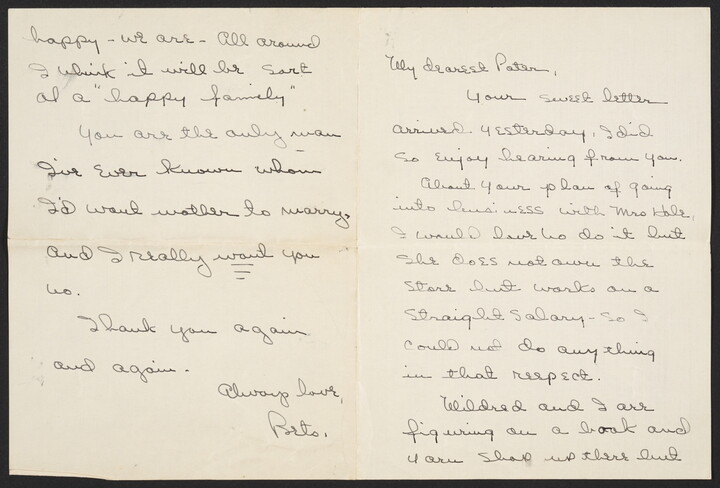 My dearest Pater,
Your sweet letter
arrived yesterday, I did
so enjoy hearing from you.
About your plan of going
into business with Mrs Hale,
I would love to do it but
she does not own the
store but works on a
straight salary - so I
could not do anything
in that respect.
Mildred and I are
figuring on a book and
yarn shop up there but
happy - we are - All around
I think it will be sort
of a "happy family"
You are the only man
I've ever known whom
I'd want mother to marry,
and I really want you
to.
Thank you again
and again.
Always love,